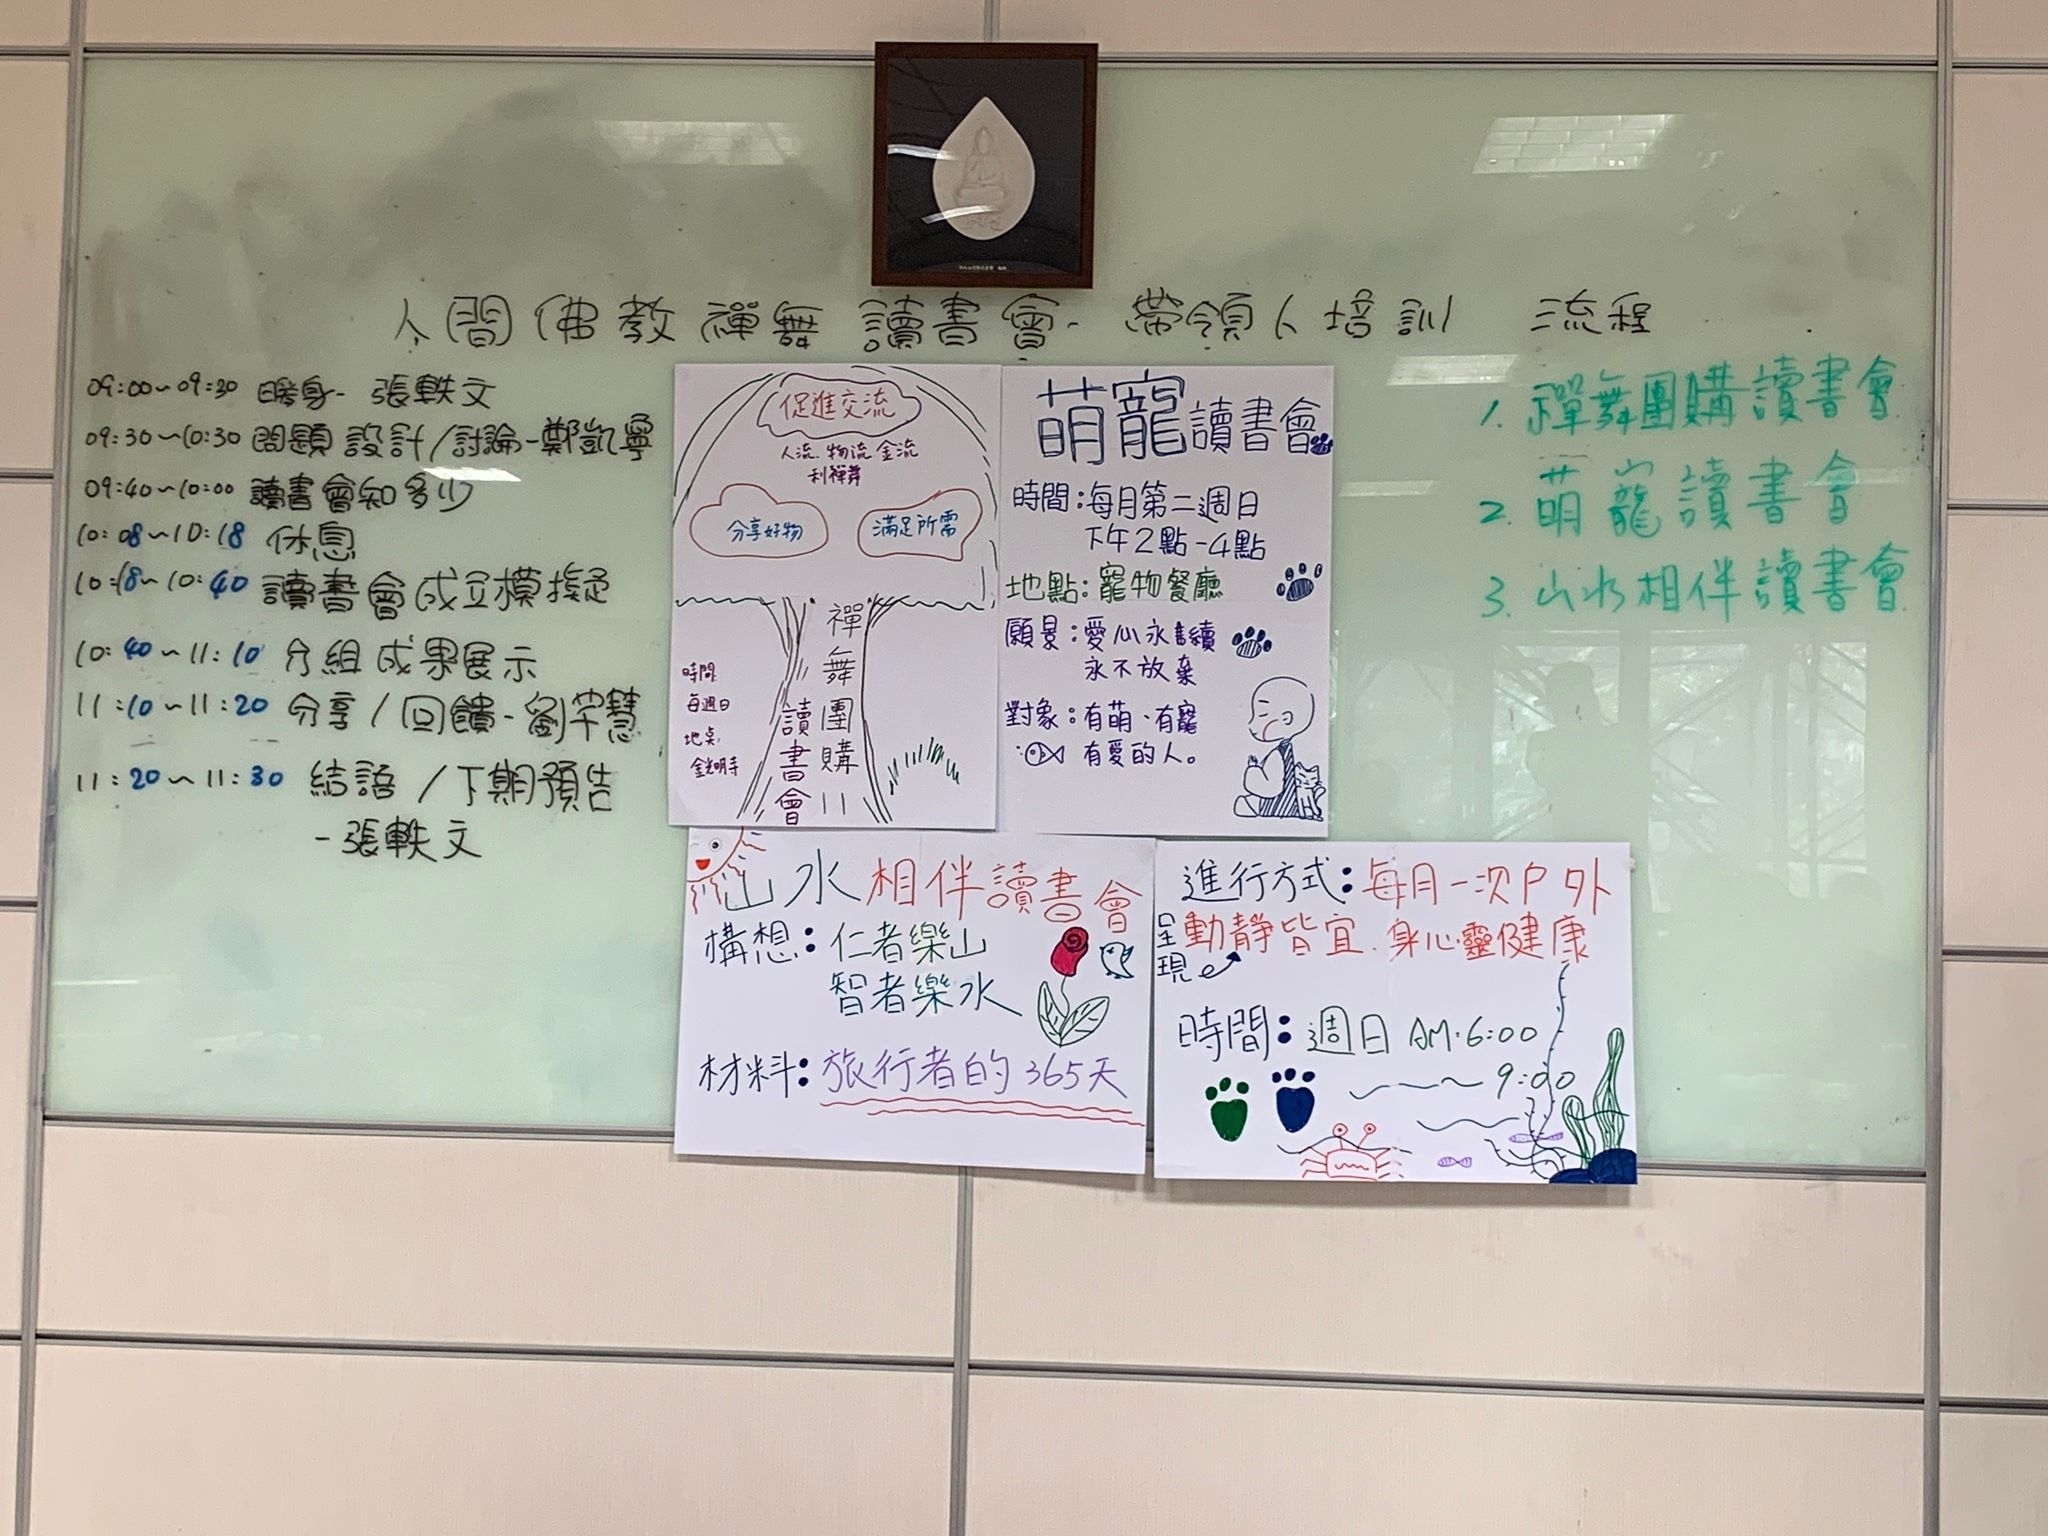 人間佛教禪舞讀書會-帶領人培訓 流程
09:00~09:30 暖身- 張軼文
09:30~10:30 問題設計/討論-鄭凱寧
09:40~10:00 讀書會知多少
10:08~10:18 休息
10:18~10:40 讀書會成立模擬
10:40~11:10 分組成果展示
11:10~11:20 分享/回饋-劉芊慧
11:20~11:30 結語/下期預告
-張軼文
促進交流
人流、物流 金流
利禪舞
分享好物
滿足所需
禪舞團購
讀書會
時間:
每週日
地點:
金光明寺
萌寵讀書會
時間:每月第二週日
下午2點-4點
地點:寵物餐廳
願景:愛心永續
永不放棄
對象:有萌、有寵
有愛的人。
1. 禪舞團購讀書會
2. 萌寵讀書會
3. 山水相伴讀書會
山水相伴讀書會
構想:仁者樂山
智者樂水
材料:旅行者的365天
進行方式:每月一次戶外
呈現
動靜皆宜、身心靈健康
時間:週日 AM.6:00
~9:00